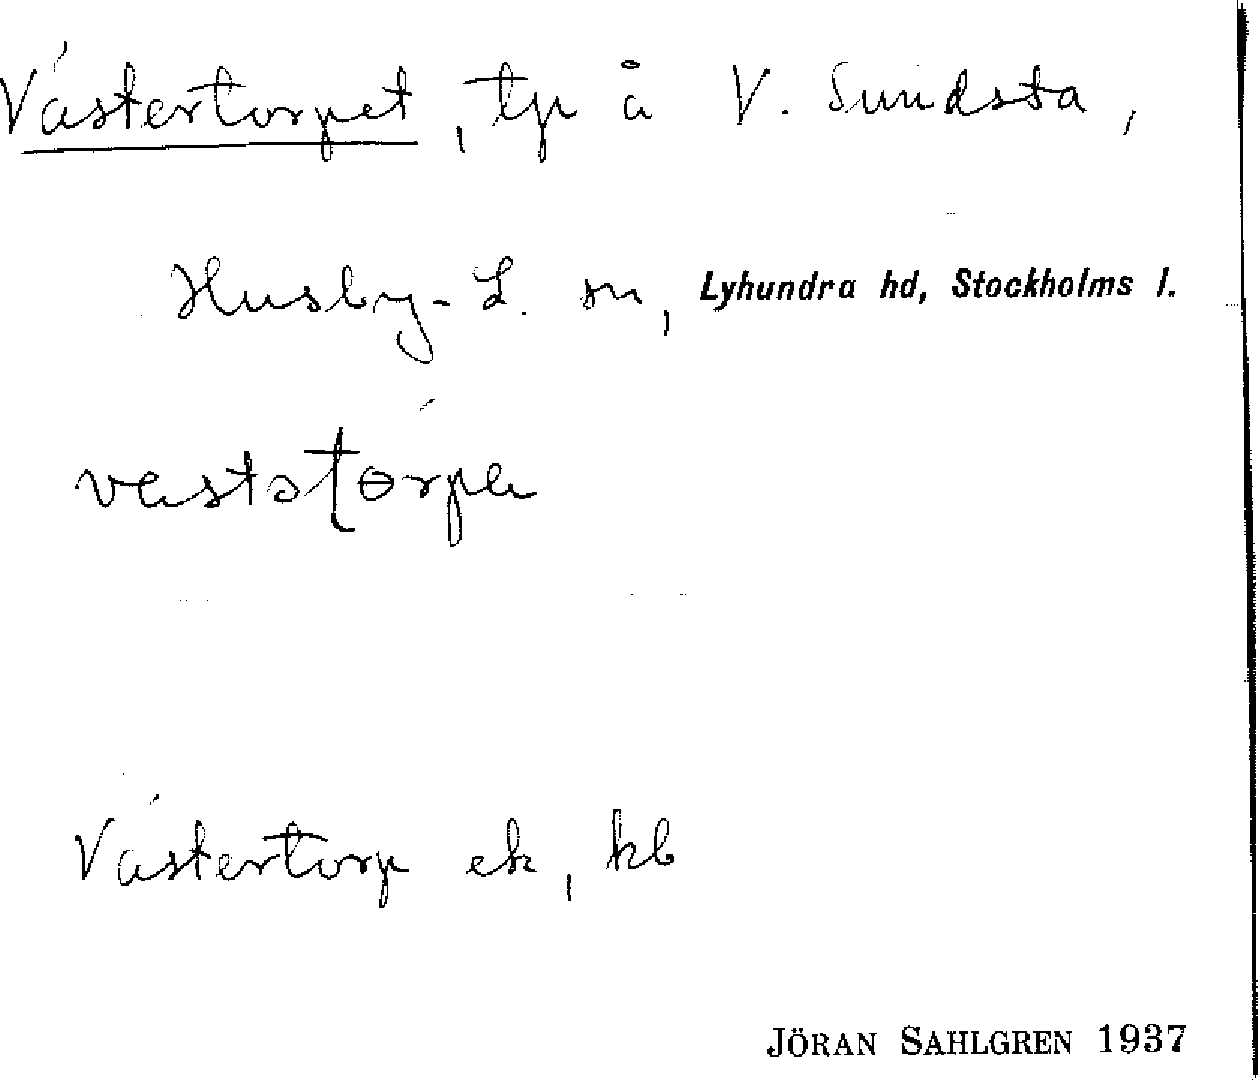 Västertorpet, tp å V. Sundsta,
Husby-L. sn, Lyhundra hd, Stockholms l.
Västertorp ek, kb
JÖRAN SAHLGREN 1937